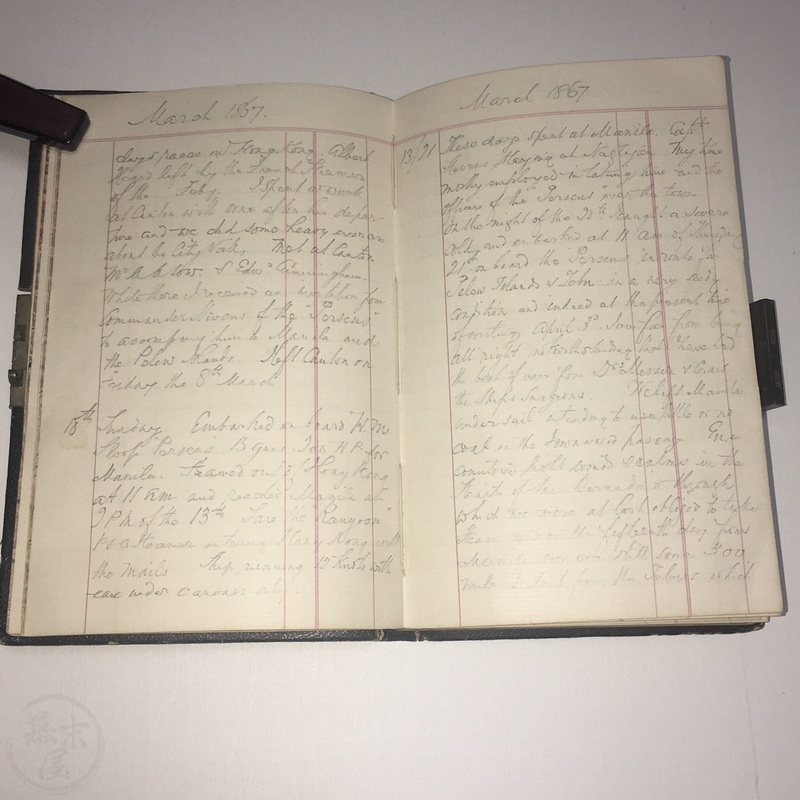 March 1867.
days passed in Hong Kong. Albert
left by the French Steamer
of the Feby. I spent a week
at Canton with some after his depar-
ture and we did some heavy
about the City Walls. Met at Canton
Mr. & Edwd. Cunningham.
While there I received an invitation from
Commander Stevens of the "Perseus"
to accompany him to Manila and
the Pelew Islands. I left Canton on
Friday the 8th March
10th Sunday Embarked on board H.M
Sloop Perseus 15 guns 200 H.P. for
Manila. Steamed out of Hong Kong
at 11 am. and reached Manila at
9 PM of the 13th. Saw the "Rangoon"
P & O Steamer entering Hong Kong with
the mails Ship running 12 knots with
ease under canvas only.
March 1867
13/21 These days spent at Manila. Captn
Stevens staying at Nagtajan. My time
mostly employed in taking him and the
officers of the "Perseus" over the town
On the night of the 20th I caught a severe
cold, and embarked at 11 am of Thursday
21st on board the Perseus en route for
Pelew Islands & Yokn. in a very seedy
condition and indeed at the present time
of writing, April 3d. I am far from being
all right, notwithstanding that I have had
the best of care from Drs. Messer & Craig
the Ships Surgeons. We left Manila
under sail intending to use little or no
coal on the downward passage. En-
countered light winds & calms in the
Straits of San Bernardino through
which we were at last obliged to take
steam on the fifteenth day from
Manila we are still some 300
miles from the Pelews which